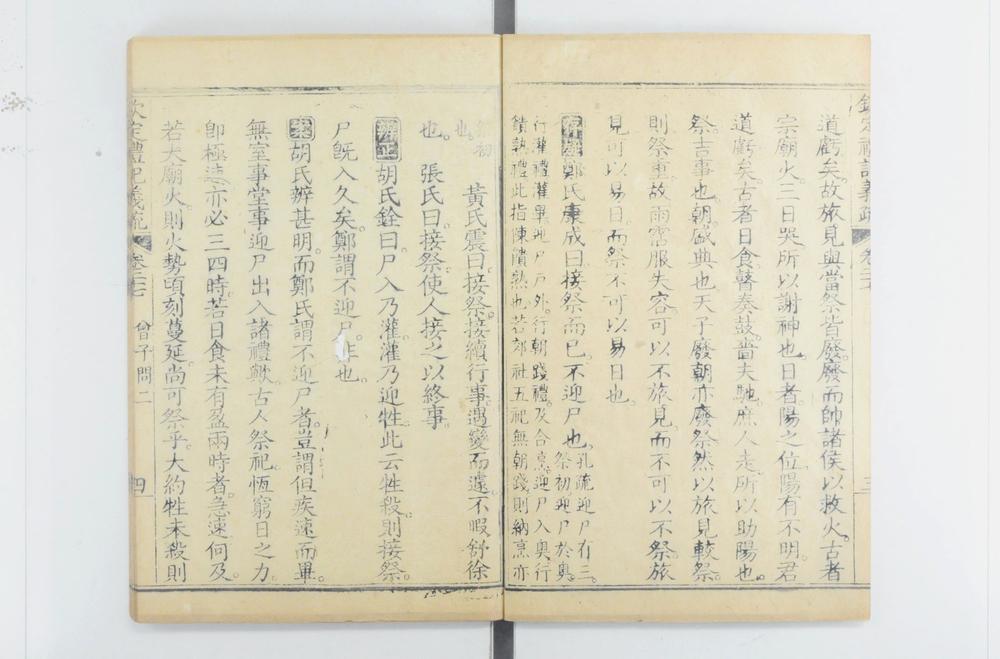 道虧矣故旅見與當祭皆廢廢而帥諸侯以救火古者
宗廟火三日哭所以謝神也日者陽之位陽有不明君
道虧矣古者日食瞽奏鼓嗇夫馳庶人走所以助陽也
祭吉事也朝盛典也天子廢朝亦廢祭然以旅見較祭
則祭重故雨霑服失容可以不旅見而不可以不祭旅
見可以易日而祭不可以易日也
鄭氏康成曰接祭而已不迎尸也孔疏迎尸有二
祭初迎尸於奧
行灌禮灌畢迎尸戶外行朝踐禮及合烹迎尸入奧行
饋熟禮此指陳饋熟也若郊社五祀無朝踐則納烹亦
初
也
黃氏震曰接祭接續行事遇變而遽不暇舒徐
也 張氏曰接祭使人接之以終事
辨正 胡氏銓曰尸入乃灌灌乃迎牲此云牲殺則接祭
尸既入久矣鄭謂不迎尸非也
案 胡氏辨甚明而鄭氏謂不迎尸者豈謂但疾速而畢
無室事堂事迎尸出入諸禮歟古人祭祀恆窮日之力
即極速亦必三四時若日食未有盈兩時者急速何及
若大廟火則火勢頃刻蔓延尚可祭乎大約牲未殺則
欽定禮記義疏 卷二十 曾子問二 四